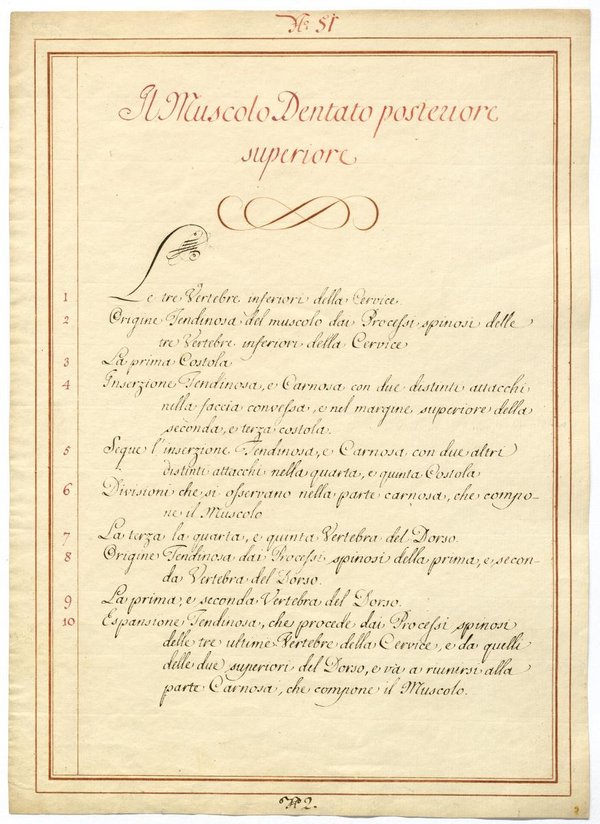 N. 51
Il Muscolo Dentato posteriore
superiore
1 Le tre Vertebre inferiori della Cervice.
2 Origine Tendinosa del muscolo dai Processi spinosi delle
tre Vertebre inferiori della Cervice
3 La prima Costola
4 Inserzione Tendinosa, e Carnosa con due distinti attacchi
nella faccia convessa, e nel margine superiore della
seconda, e terza costola.
5 Segue l'inserzione Tendinosa, e Carnosa con due altri
distinti attacchi nella quarta, e quinta Costola
6 Divisioni che si osservano nella parte carnosa, che compo-
ne il Muscolo
7 La terza la quarta, e quinta Vertebra del Dorso.
8 Origine Tendinosa dai Processi spinosi della prima, e secon-
da Vertebra del Dorso.
9 La prima, e seconda Vertebra del Dorso.
10 Espansione Tendinosa, che procede dai Processi spinosi
delle tre ultime Vertebre della Cervice, e da quelli
delle due superiori del Dorso, e và a riunirsi alla
parte Carnosa, che compone il Muscolo.
N. 2.